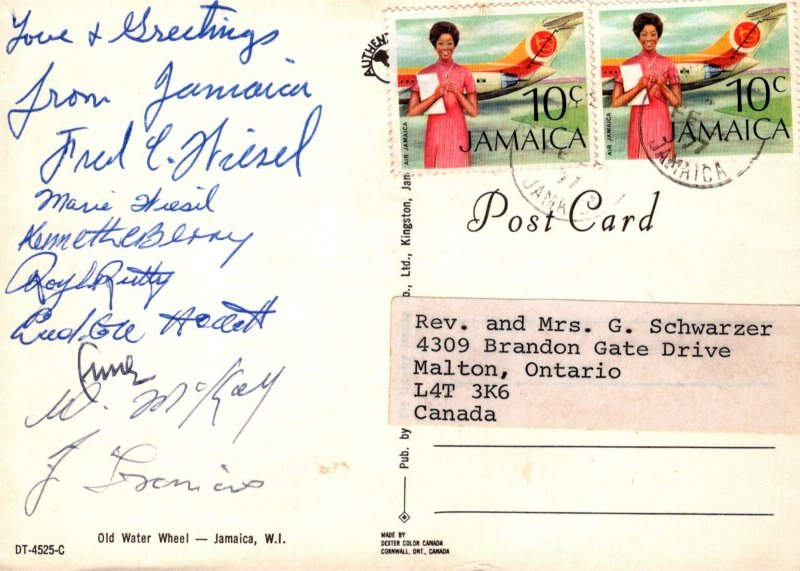 Love & Greetings
from Jamaica
Fred C. Wiesel
Marie Wiesel
Kenneth C Berry
Roy L Rutty
W. McKay
J
Old Water Wheel — Jamaica, W.I.
DT-4525-C
AUTHENT
10c
JAMAICA
AIR JAMAICA
10c
JAMAICA
AIR JAMAICA
77
JAMAICA
Post Card
Pub. by
o., Ltd., Kingston, Jam
Rev. and Mrs. G. Schwarzer
4309 Brandon Gate Drive
Malton, Ontario
L4T 3K6
Canada
MADE BY
DEXTER COLOR CANADA
CORNWALL, ONT., CANADA